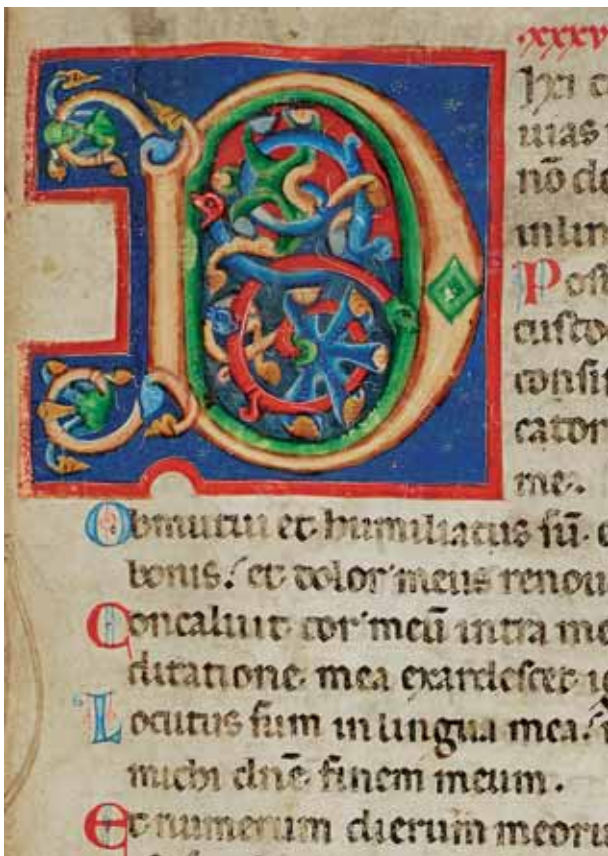 D .xxxv
ixi c
uias
nō c
in lin
Posu
custo
consis
cator
me.
Obmutui et humiliatus sū.
bonis: et dolor meus renou
Concaluit cor meū intra me
ditatione mea exardescet
Locutus sum in lingua mea:
michi dn̄e finem meum.
Et numerum dierum meoru